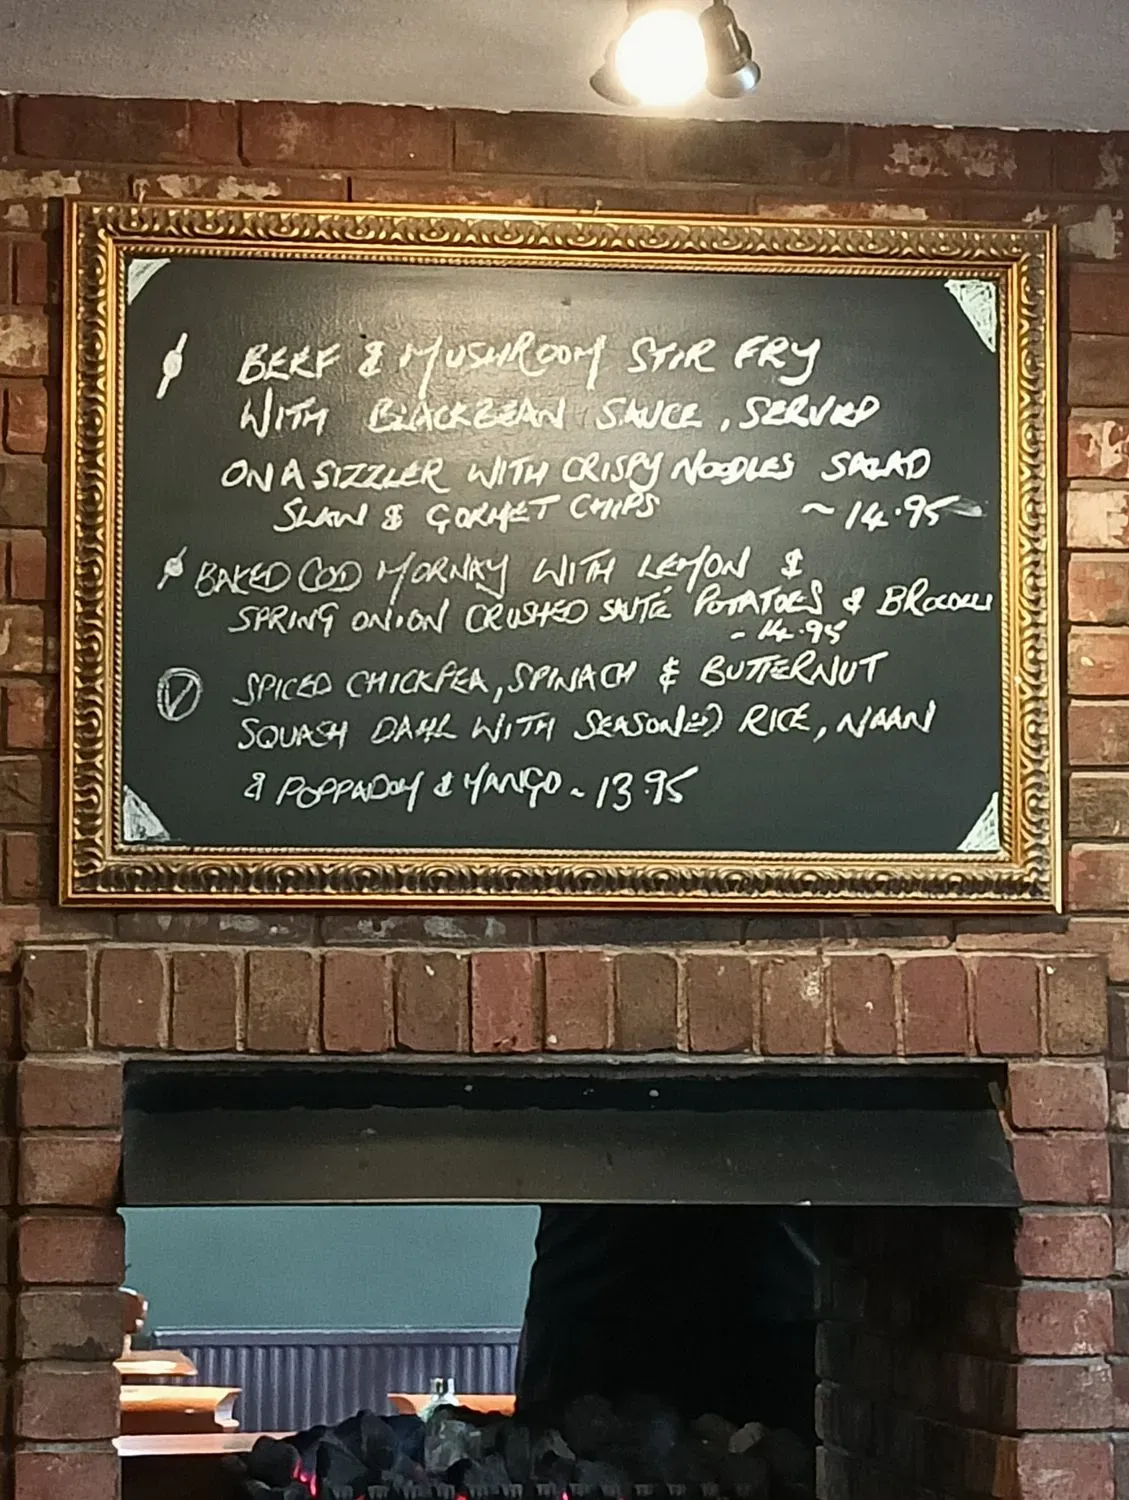 BEEF & MUSHROOM STIR FRY
WITH BLACKBEAN SAUCE, SERVED
ON A SIZZLER WITH CRISPY NOODLES SALAD
SLAW & GORMET CHIPS ~ 14.95
BAKED COD MORNAY WITH LEMON &
SPRING ONION CRUSHED SAUTÉ POTATOES & BROCOLLI
- 14.95
V SPICED CHICKPEA, SPINACH & BUTTERNUT
SQUASH DAHL WITH SEASONED RICE, NAAN
& POPPADOM & MANGO ~ 13.95